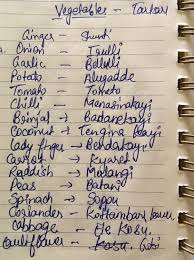 Vegetables - Tarkari
Ginger - Shunti
Onion - Irulli
Garlic - Bellulli
Potato - Alugadde
Tomato - Tometo
Chilli - Manasinakayi
Brinjal → Badanekayi
Coconut → Tengina Kayi
Lady finger → Bendekayi
Carrot → Kyaret
Raddish → Mulangi
Peas → Batani
Spinach → Soppu
Coriander → Kottambari
Cabbage - Ele Kosu.
Cauliflower - Kosu.